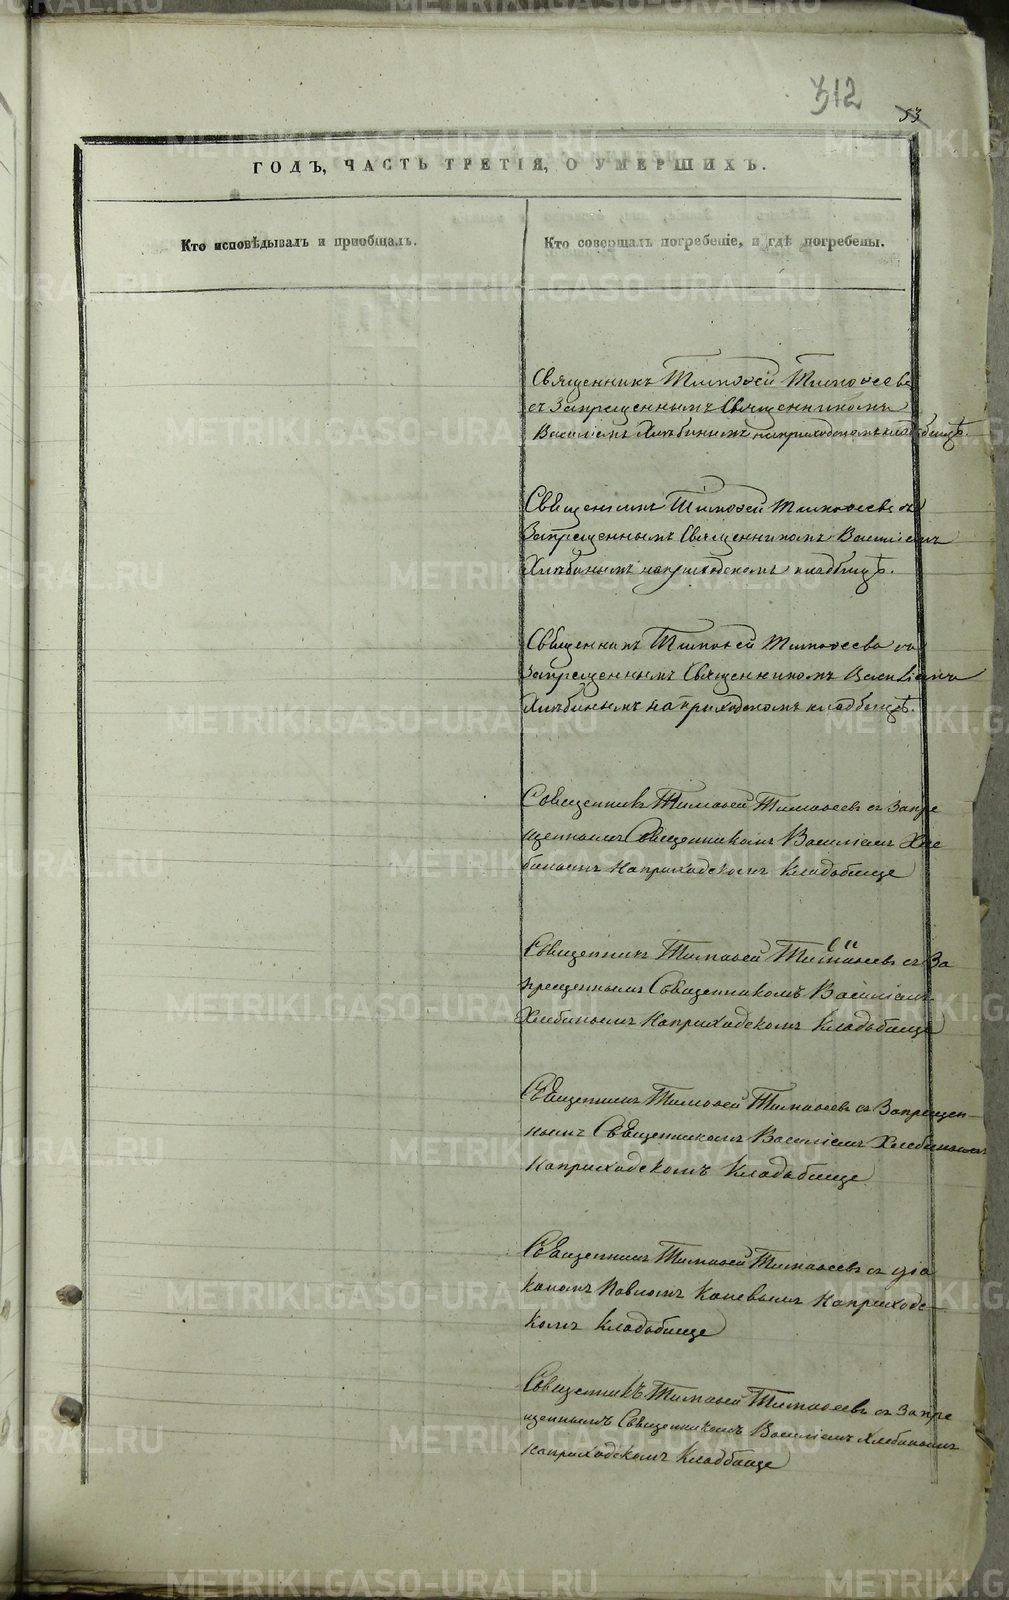 312
53
ГОДЪ, ЧАСТЬ ТРЕТІЯ, О УМЕРШИХЪ.
Кто исповѣдывалъ и пріобщалъ.
Кто совершалъ погребеніе, и гдѣ погребены.
Священникъ Тимоѳей Тимоѳеевъ
съ Запрещеннымъ Священникомъ
Василіемъ Хлѣбинымъ наприходскомъ кладбищѣ.
Священникъ Тимоѳей Тимоѳеевъ съ
Запрещеннымъ Священникомъ Василіемъ
Хлѣбинымъ наприходскомъ кладбищѣ.
Священникъ Тимоѳей Тимоѳеевъ съ
Запрещеннымъ Священникомъ Василіемъ
Хлѣбинымъ наприходскомъ кладбищѣ.
Священникъ Тимоѳей Тимоѳеевъ съ Запре
щеннымъ Священникомъ Василіемъ Хле
бинымъ Наприходскомъ Кладьбище
Священникъ Тимоѳей Тимоѳеевъ съ За
прещеннымъ Священникомъ Василіемъ
Хлебинымъ Наприходскомъ Кладьбище
Священникъ Тимоѳей Тимоѳеевъ съ Запрещен-
нымъ Священникомъ Василіемъ Хлебинымъ
Наприходскомъ Кладьбище
Священникъ Тимоѳей Тимоѳеевъ съ діа
кономъ Павломъ Наприходс-
комъ Кладьбище
Священникъ Тимоѳей Тимоѳеевъ съ Запре
щеннымъ Священникомъ Василіемъ Хлебинымъ
наприходскомъ Кладбище
METRIKI.GASO-URAL.RU